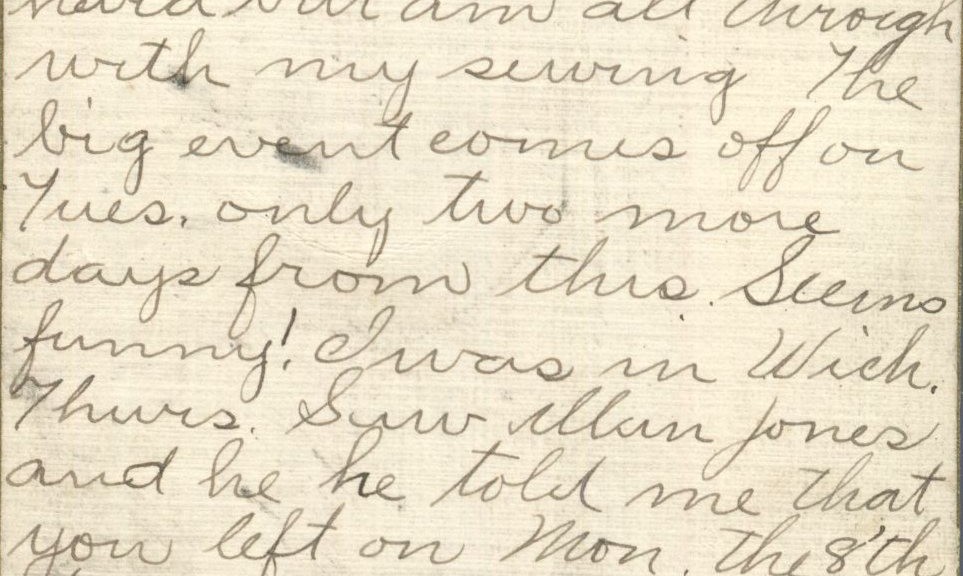 hard but am all through
with my sewing The
big event comes off on
Tues. only two more
days from this. Seems
funny! I was in Wich.
Thurs. Saw Allan Jones
and he he told me that
you left on Mon. the 8'th